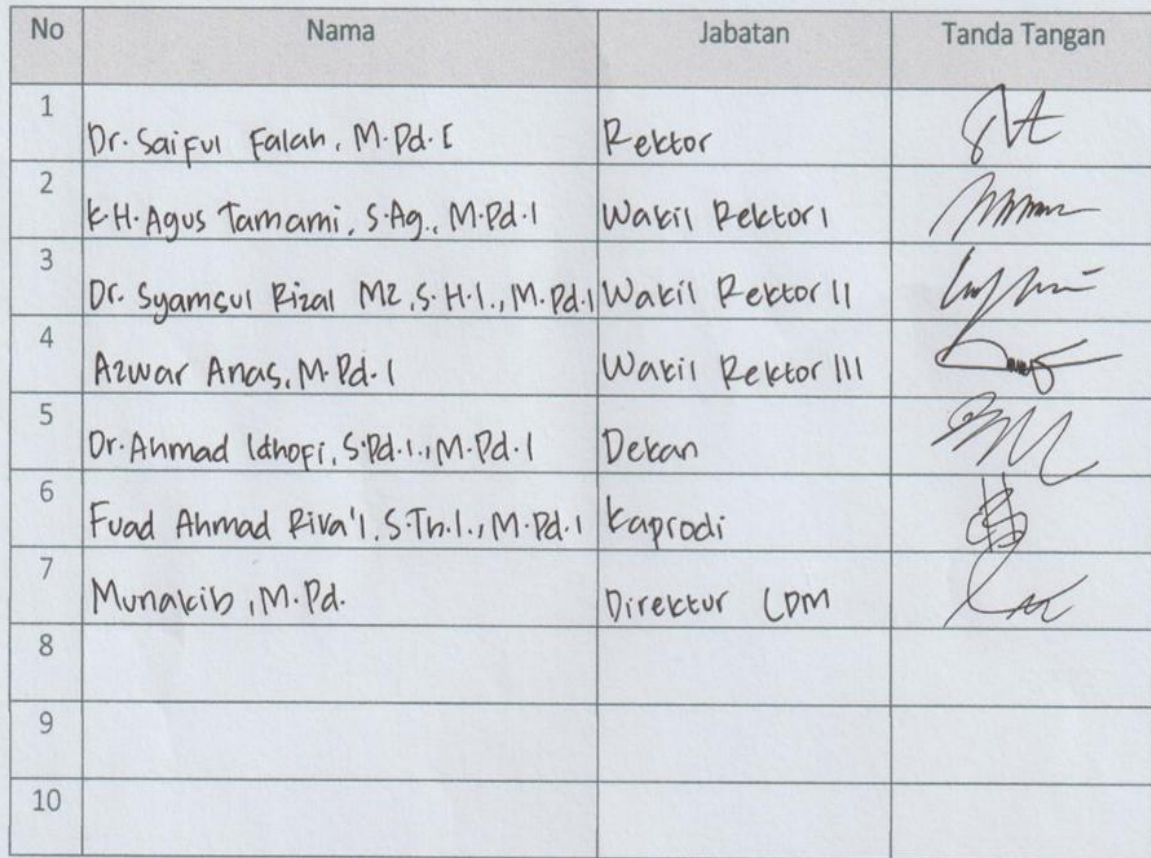 No Nama Jabatan Tanda Tangan
1 Dr. Saiful Falah, M.Pd.I Rektor
2 K.H. Agus Tamami, S.Ag., M.Pd.I Wakil Rektor I
3 Dr. Syamsul Rizal MZ, S.H.I., M.Pd.I Wakil Rektor II
4 Azwar Anas, M.Pd.I Wakil Rektor III
5 Dr. Ahmad Idhofi, S.Pd.I., M.Pd.I Dekan
6 Fuad Ahmad Riva'I, S.Th.I., M.Pd.I Kaprodi
7 Munakib, M.Pd. Direktur LDM
8
9
10